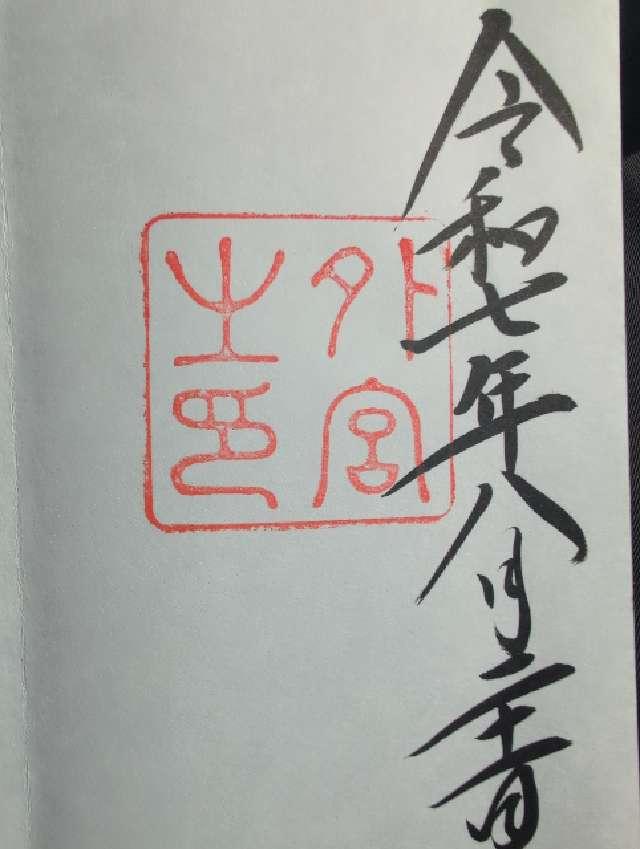 令和七年八月
外宮
之印